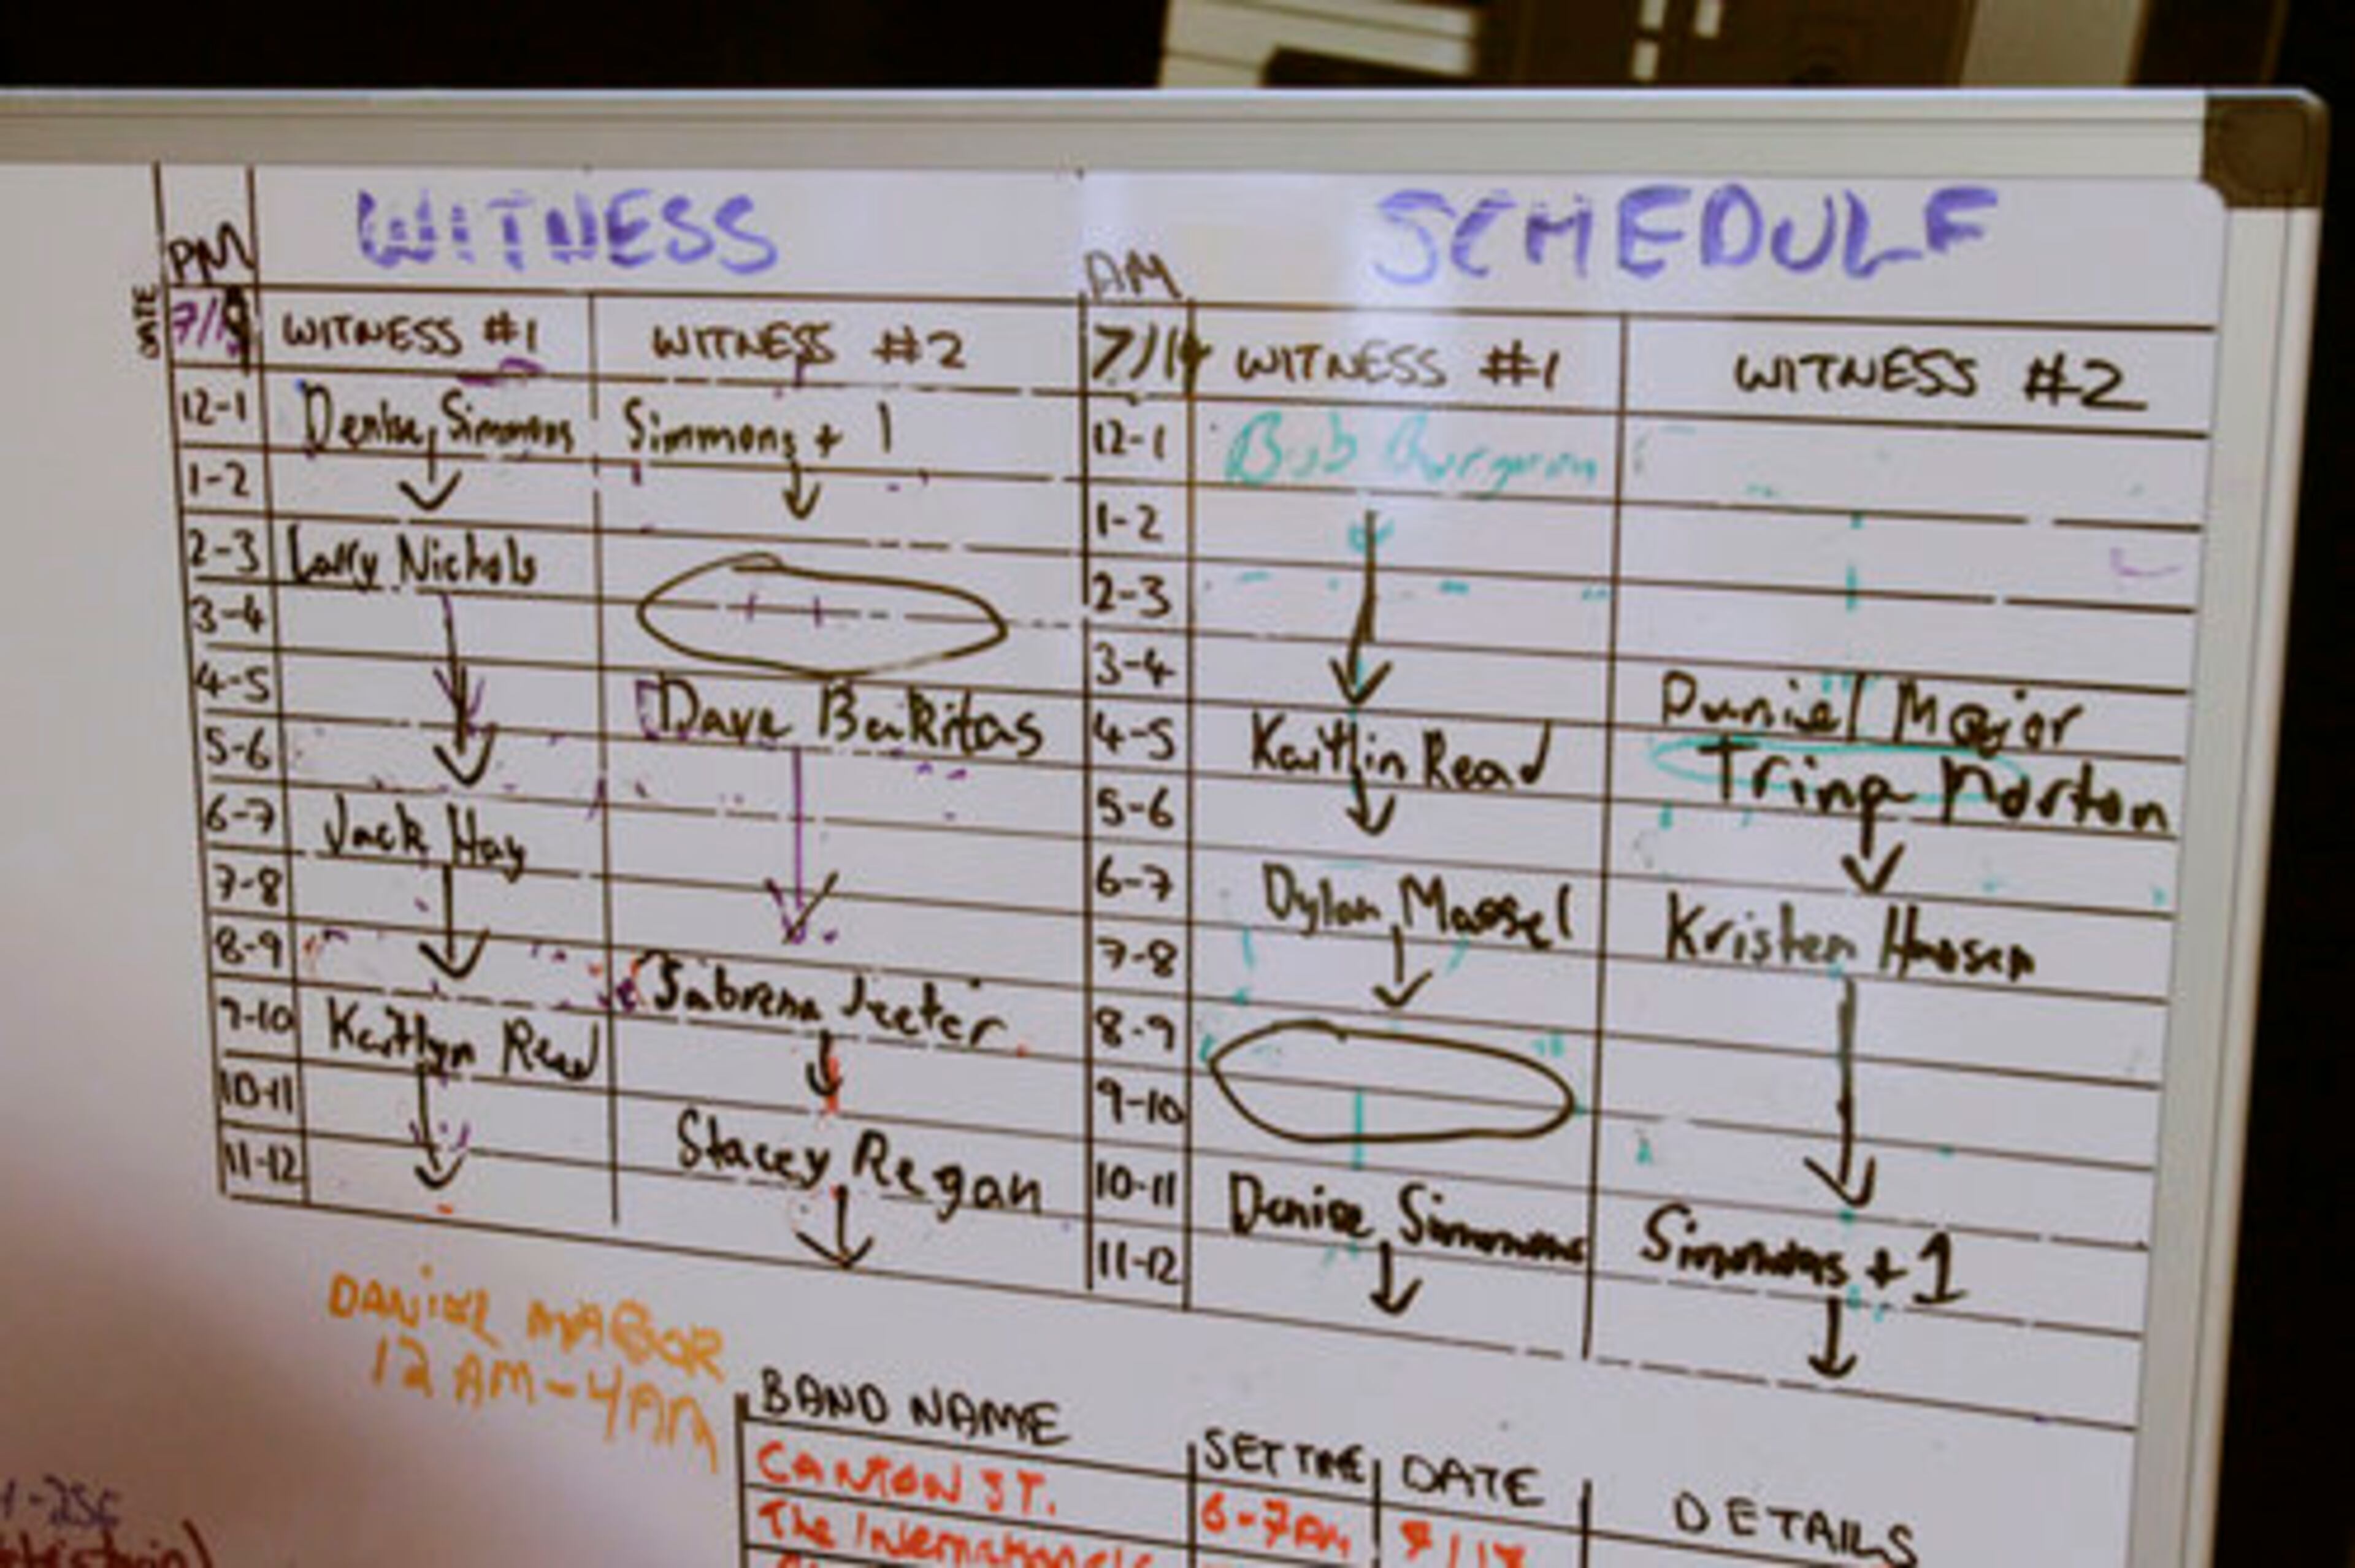 WITNESS SCHEDULE
PM AM
DATE WITNESS #1 WITNESS #2 WITNESS #1 WITNESS #2
12-1 Simmons Simmons + 1 12-1 Bob
1-2 1-2
2-3 Larry Nichols 2-3
3-4 3-4 Daniel Major
4-5 Dave Bakitas 4-5 Kaitlin Read Trina Morton
5-6 5-6
6-7 Jack Hay 6-7 Dylan Massel Kristen Hansen
7-8 7-8
8-9 Sabrena Jeeter 8-9
9-10 Kaitlyn Read 9-10
10-11 Stacey Regan 10-11 Denise Simmons Simmons + 1
11-12 11-12
DANIEL MAJOR
12 AM-4AM
BAND NAME SET TIME DATE DETAILS
CANTON ST. 6-7AM
The Internationals